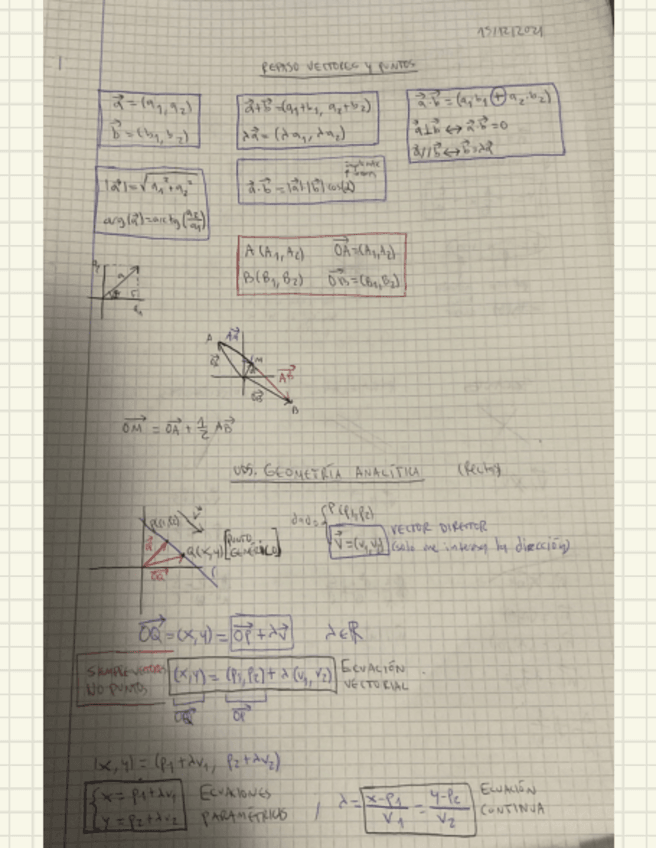 15/12/2021
REPASO VECTORES Y PUNTOS
a⃗ = (a₁, a₂)
b⃗ = (b₁, b₂)
a⃗+b⃗ = (a₁+b₁, a₂+b₂)
λa⃗ = (λa₁, λa₂)
a⃗·b⃗ = (a₁·b₁ + a₂·b₂)
a⃗⊥b⃗ ↔ a⃗·b⃗ = 0
a⃗//b⃗ ↔ b⃗=λa⃗
|a⃗| = √a₁²+a₂²
arg(a⃗) = arctg(a₂/a₁)
a⃗·b⃗ = |a⃗|·|b⃗| cos(α)
A(A₁, A₂) OA⃗=(A₁, A₂)
B(B₁, B₂) OB⃗=(B₁, B₂)
A
M
AB⃗
OB⃗
B
OM⃗ = OA⃗ + 1/2 AB⃗
UD5. GEOMETRÍA ANALÍTICA (Recta)
V⃗
P(p₁, p₂)
Q(x,y) [PUNTO GENÉRICO]
OQ⃗
r
V⃗ = (v₁, v₂) VECTOR DIRECTOR
(solo me interesa la dirección)
OQ⃗ = (x, y) = OP⃗ + λV⃗ λ∈ℝ
SIEMPRE VECTORES
NO PUNTOS
(x, y) = (p₁, p₂) + λ(v₁, v₂) ECUACIÓN
VECTORIAL
OQ⃗ OP⃗
(x, y) = (p₁+λv₁, p₂+λv₂)
x = p₁+λv₁ ECUACIONES
y = p₂+λv₂ PARAMÉTRICAS
/ λ = x-p₁/v₁ = y-p₂/v₂ ECUACIÓN
CONTINUA